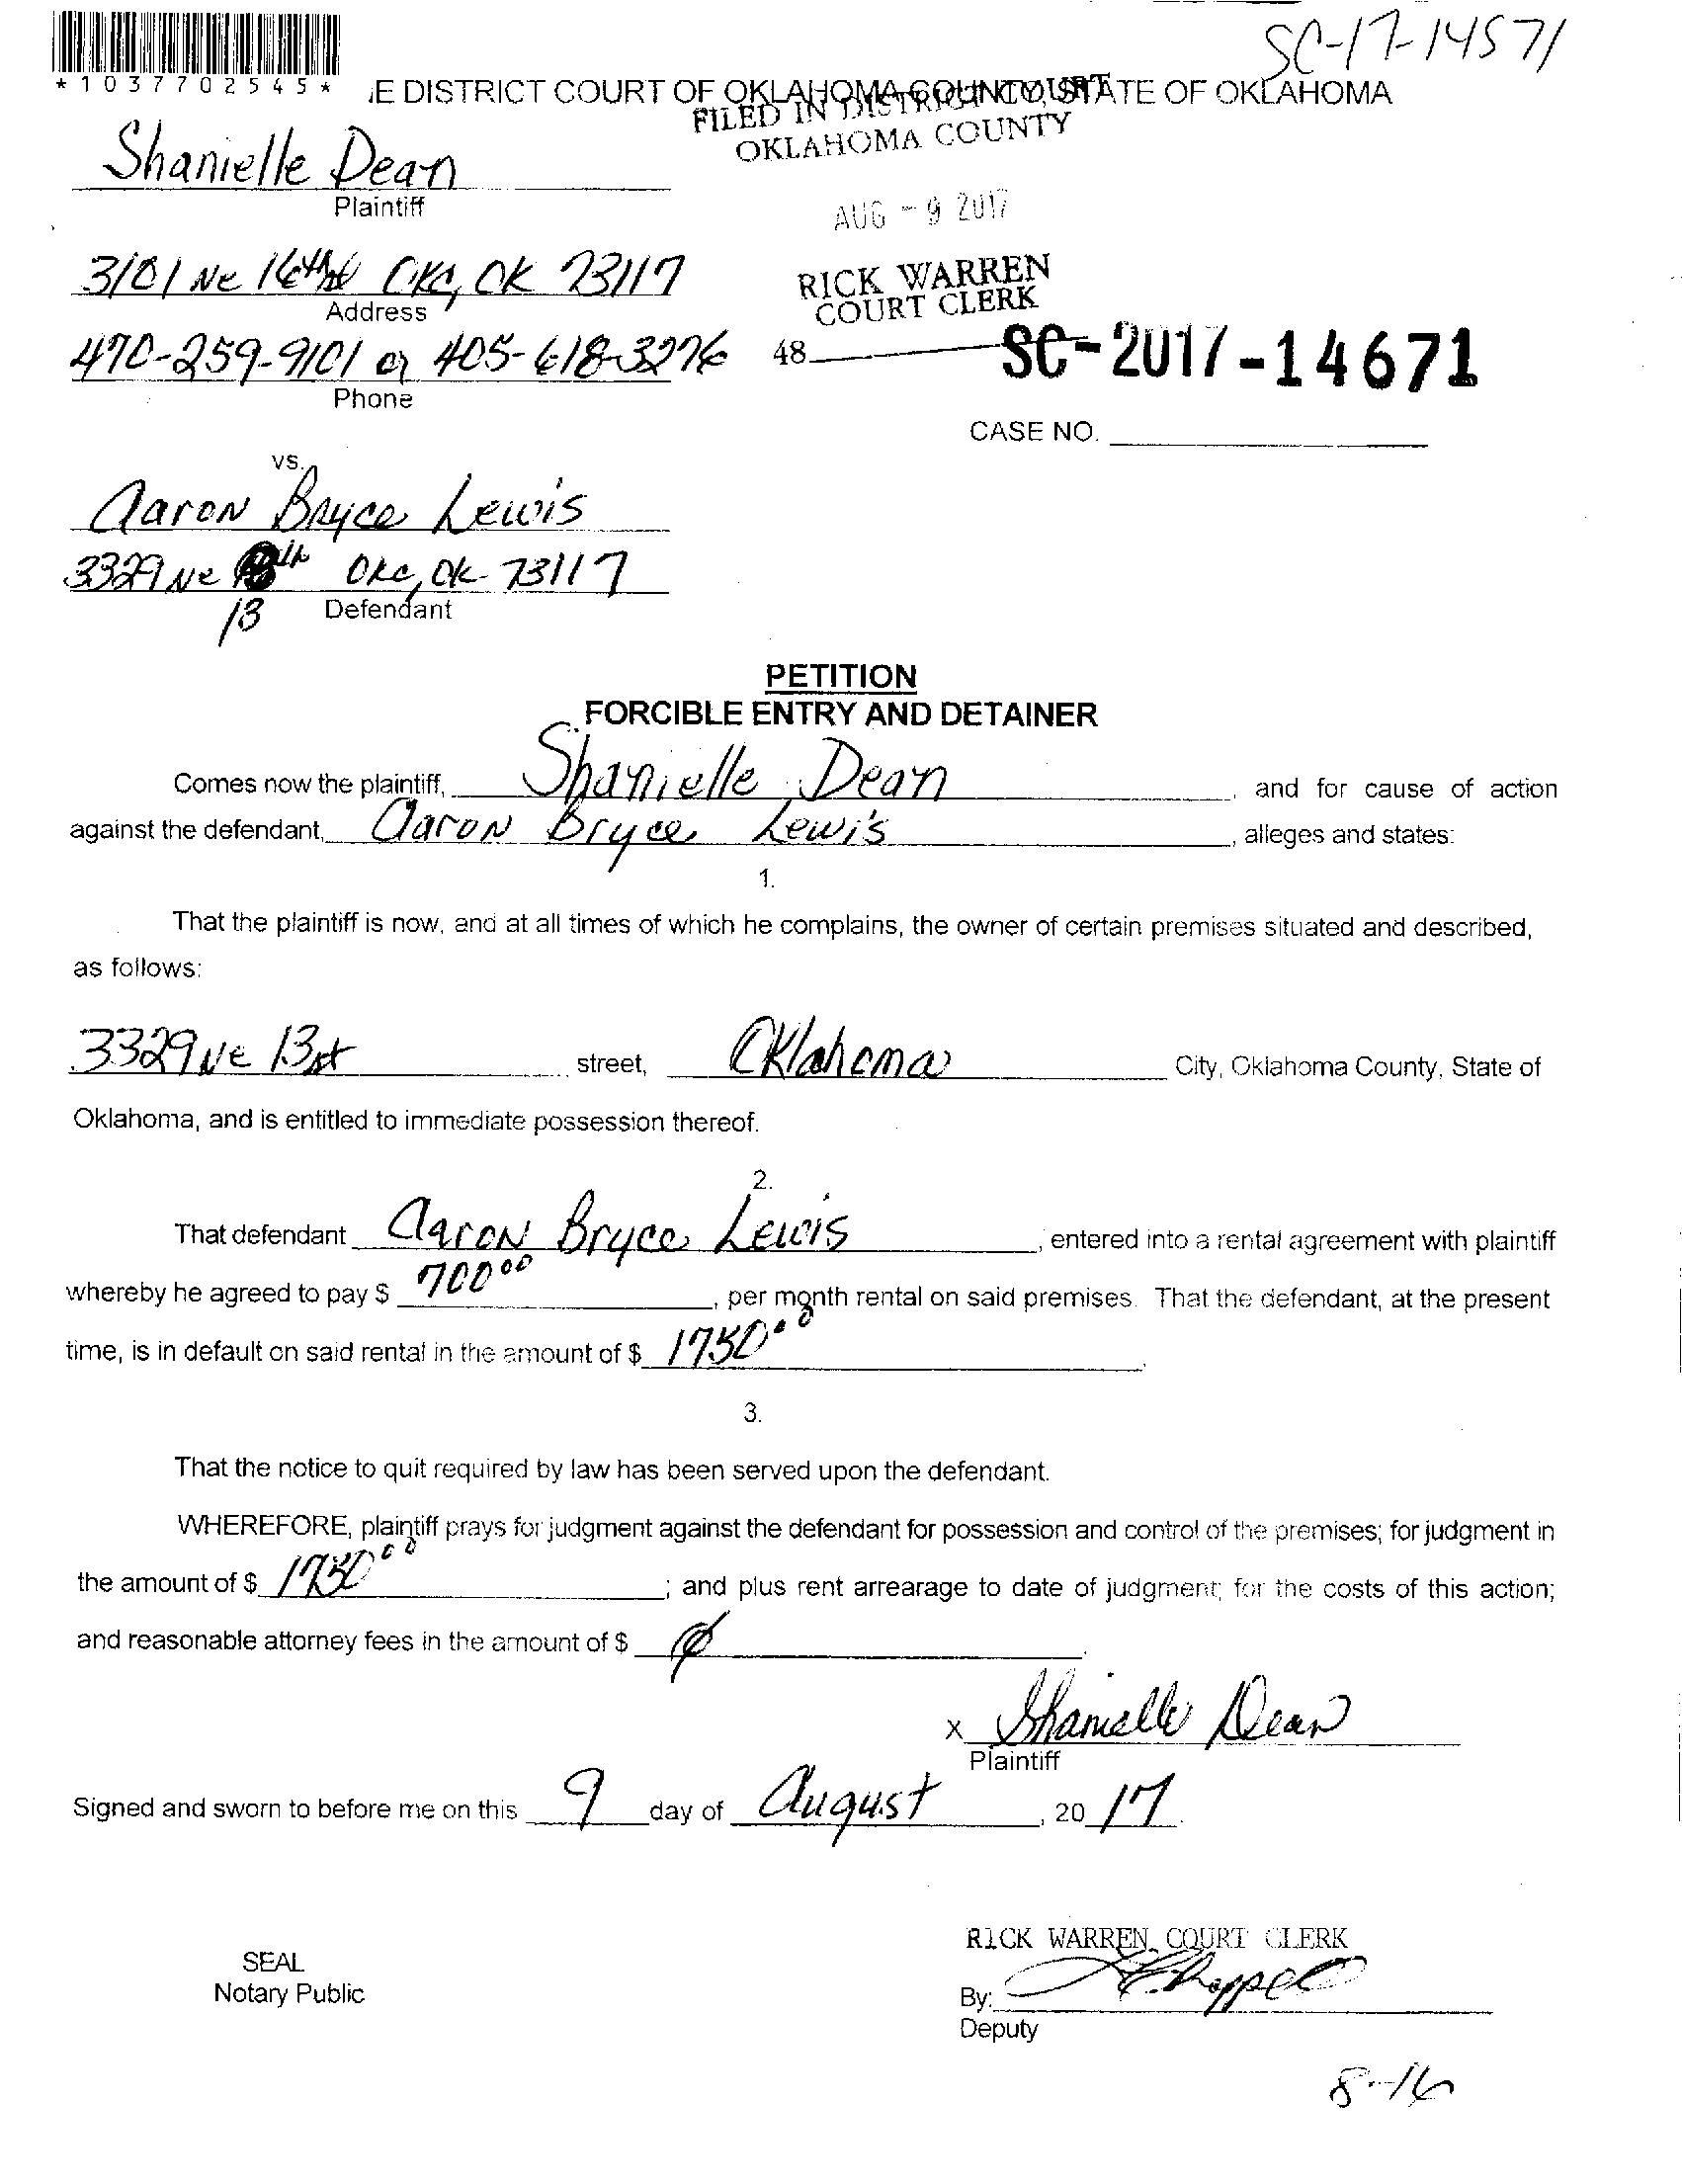 SC-17-14571
*1037702545*
E DISTRICT COURT OF OKLAHOMA COUNTY, STATE OF OKLAHOMA
FILED IN DISTRICT COURT
OKLAHOMA COUNTY
Shanielle Dean
Plaintiff
AUG - 9 2017
3101 NE 16th OKC, OK 73117
Address
RICK WARREN
COURT CLERK
470-259-9101 or 405-618-3276
Phone
48
SC-2017-14671
CASE NO.
vs.
Aaron Bryce Lewis
3329 NE th OKC, OK 73117
13
Defendant
PETITION
FORCIBLE ENTRY AND DETAINER
Comes now the plaintiff, Shanielle Dean, and for cause of action
against the defendant, Aaron Bryce Lewis, alleges and states:
1.
That the plaintiff is now, and at all times of which he complains, the owner of certain premises situated and described,
as follows:
3329 NE 13st street, Oklahoma City, Oklahoma County, State of
Oklahoma, and is entitled to immediate possession thereof.
2.
That defendant Aaron Bryce Lewis, entered into a rental agreement with plaintiff
whereby he agreed to pay $ 700 00, per month rental on said premises. That the defendant, at the present
time, is in default on said rental in the amount of $ 1750 00.
3.
That the notice to quit required by law has been served upon the defendant.
WHEREFORE, plaintiff prays for judgment against the defendant for possession and control of the premises; for judgment in
the amount of $ 1750 00; and plus rent arrearage to date of judgment; for the costs of this action;
and reasonable attorney fees in the amount of $ ∅.
x Shanielle Dean
Plaintiff
Signed and sworn to before me on this 9 day of August, 20 17.
RICK WARREN, COURT CLERK
SEAL
Notary Public
By:
Deputy
8-16